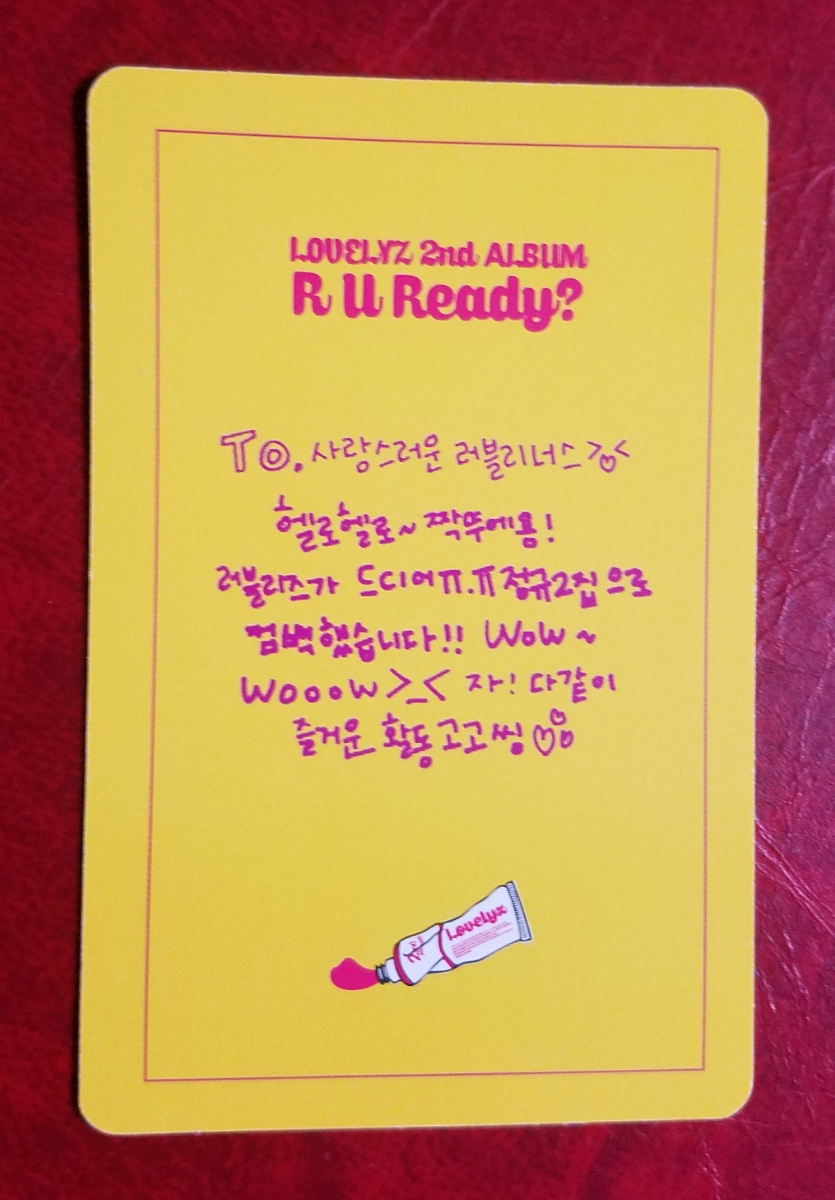 LOVELYZ 2nd ALBUM
R U Ready?
To. 사랑스러운 러블리너스 >♡<
헬로헬로~ 짝뚜에용!
러블리즈가 드디어ㅠ.ㅠ 정규2집으로
컴백했습니다!! WoW ~
WoooW >_< 자! 다같이
즐거운 활동 고고씽 ♡♡♡
Lovelyz